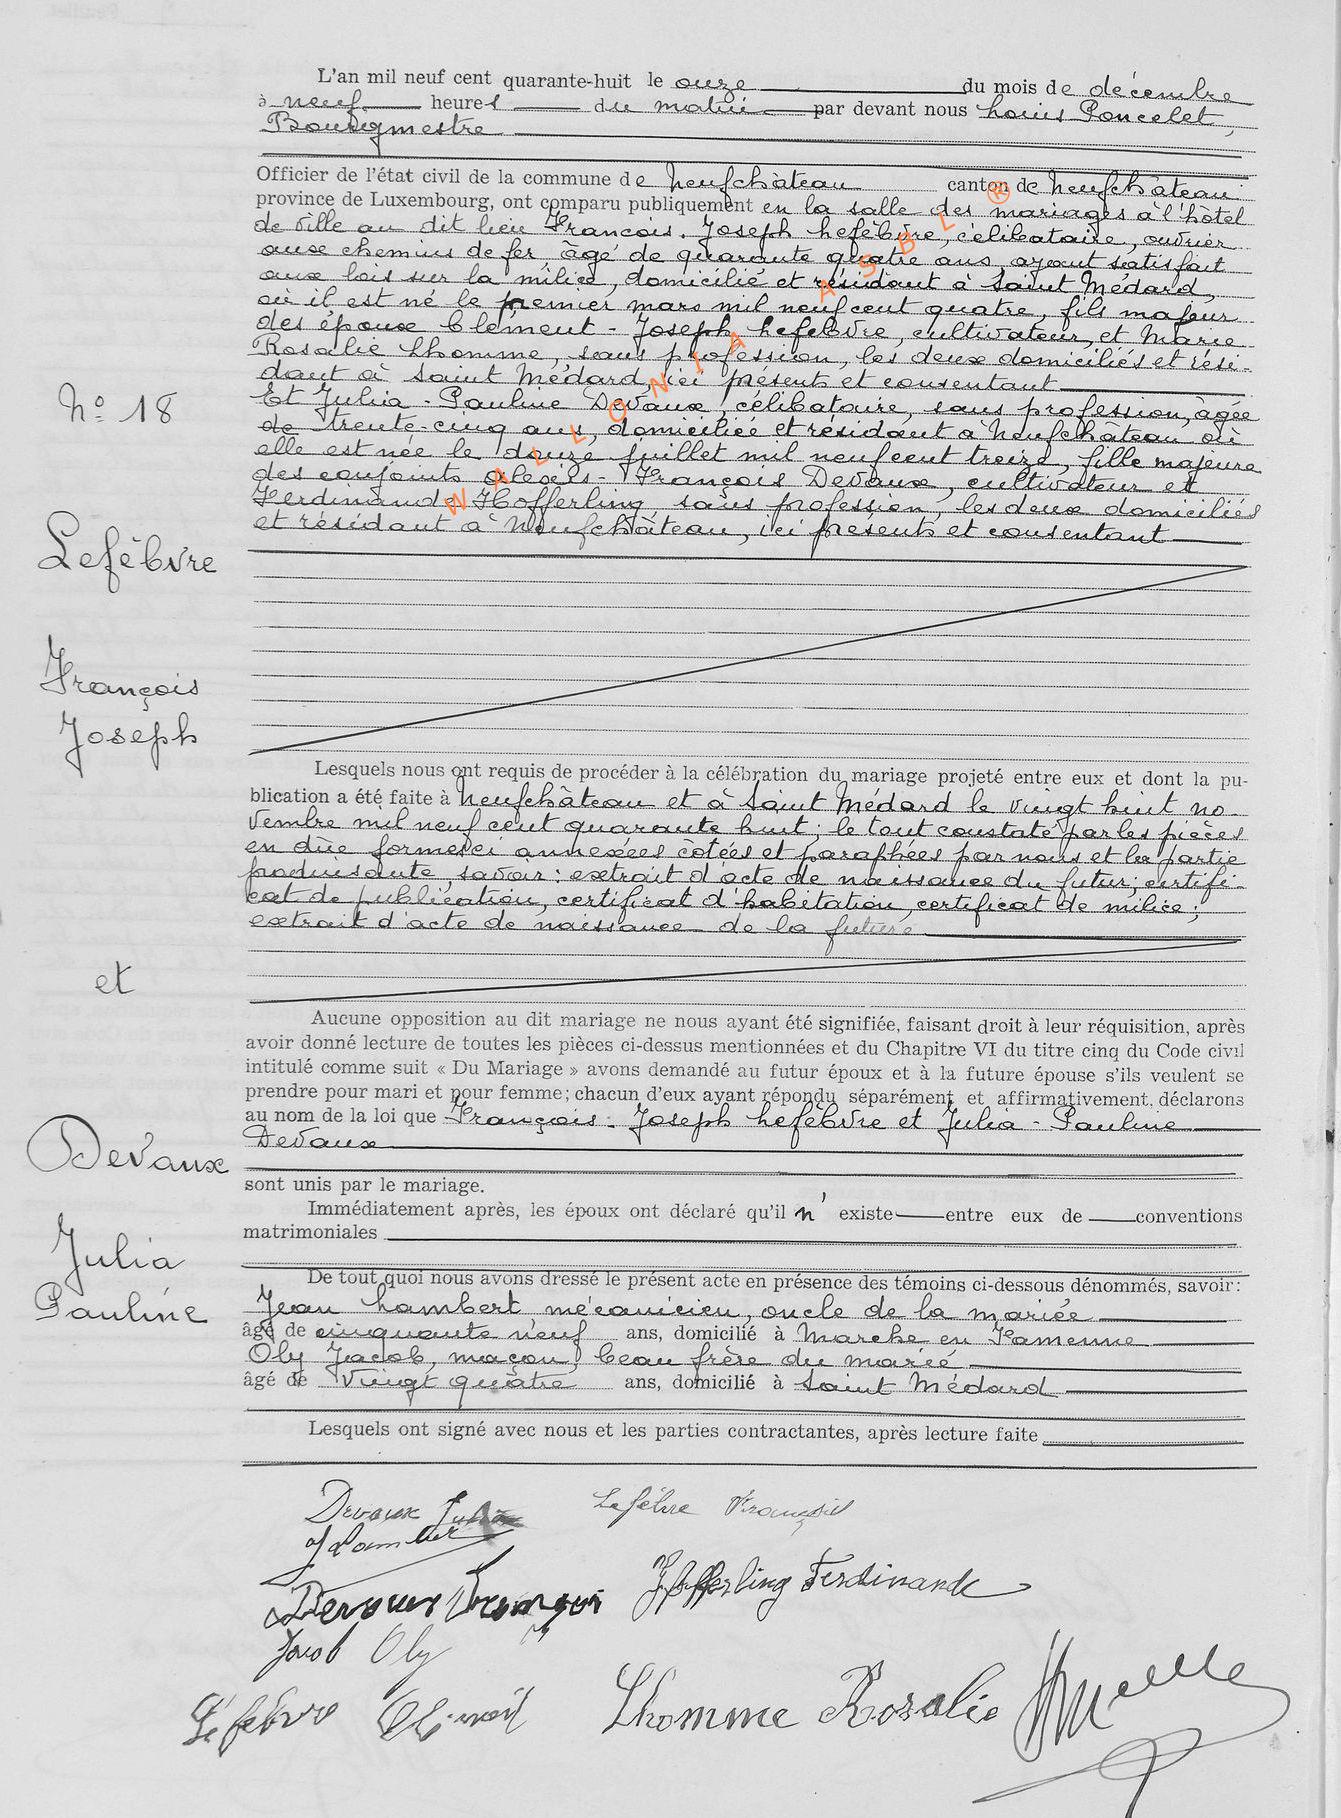 L'an mil neuf cent quarante-huit le onze du mois de décembre
à neuf heures du matin par devant nous Louis Poncelet,
Bourgmestre
Officier de l'état civil de la commune de Neufchâteau canton de Neufchâteau
province de Luxembourg, ont comparu publiquement en la salle des mariages à l'hôtel
de ville au dit lieu François-Joseph Lefèbvre, célibataire, ouvrier
aux chemins de fer, âgé de quarante quatre ans, ayant satisfait
aux lois sur la milice, domicilié et résidant à Saint Médard,
où il est né le premier mars mil neuf cent quatre, fils majeur
des époux Clément-Joseph Lefebvre, cultivateur, et Marie
Rosalie Lhomme, sans profession, les deux domiciliés et rési-
dant à Saint Médard, ici présents et consentant
Et Julia-Pauline Devaux, célibataire, sans profession, âgée
de trente-cinq ans, domiciliée et résidant à Neufchâteau où
elle est née le douze juillet mil neuf cent treize, fille majeure
des conjoints Alexis-François Devaux, cultivateur et
Ferdinande Hofferling, sans profession, les deux domiciliés
et résidant à Neufchâteau, ici présents et consentant
WALLONIA ASBL ®
N° 18
Lefèbvre
François
Joseph
et
Devaux
Julia
Pauline
Lesquels nous ont requis de procéder à la célébration du mariage projeté entre eux et dont la pu-
blication a été faite à Neufchâteau et à Saint Médard le vingt huit no-
vembre mil neuf cent quarante huit; le tout constaté par les pièces
en due forme ci annexées cotées et paraphées par nous et la partie
produisante, savoir: extrait d'acte de naissance du futur; certifi-
cat de publication, certificat d'habitation, certificat de milice;
extrait d'acte de naissance de la future
Aucune opposition au dit mariage ne nous ayant été signifiée, faisant droit à leur réquisition, après
avoir donné lecture de toutes les pièces ci-dessus mentionnées et du Chapitre VI du titre cinq du Code civil
intitulé comme suit « Du Mariage » avons demandé au futur époux et à la future épouse s'ils veulent se
prendre pour mari et pour femme; chacun d'eux ayant répondu séparément et affirmativement, déclarons
au nom de la loi que François-Joseph Lefèbvre et Julia-Pauline
Devaux
sont unis par le mariage.
Immédiatement après, les époux ont déclaré qu'il n'existe entre eux de conventions
matrimoniales
De tout quoi nous avons dressé le présent acte en présence des témoins ci-dessous dénommés, savoir:
Jean Lambert mécanicien, oncle de la mariée
âgé de cinquante neuf ans, domicilié à Marche en Famenne
Oly Jacob, maçon, beau frère du marié
âgé de vingt quatre ans, domicilié à Saint Médard
Lesquels ont signé avec nous et les parties contractantes, après lecture faite
Devaux Julia Lefèbvre François
J Lambert
Devaux François Hofferling Ferdinande
Jacob Oly
Lefèbvre Clément Lhomme Rosalie